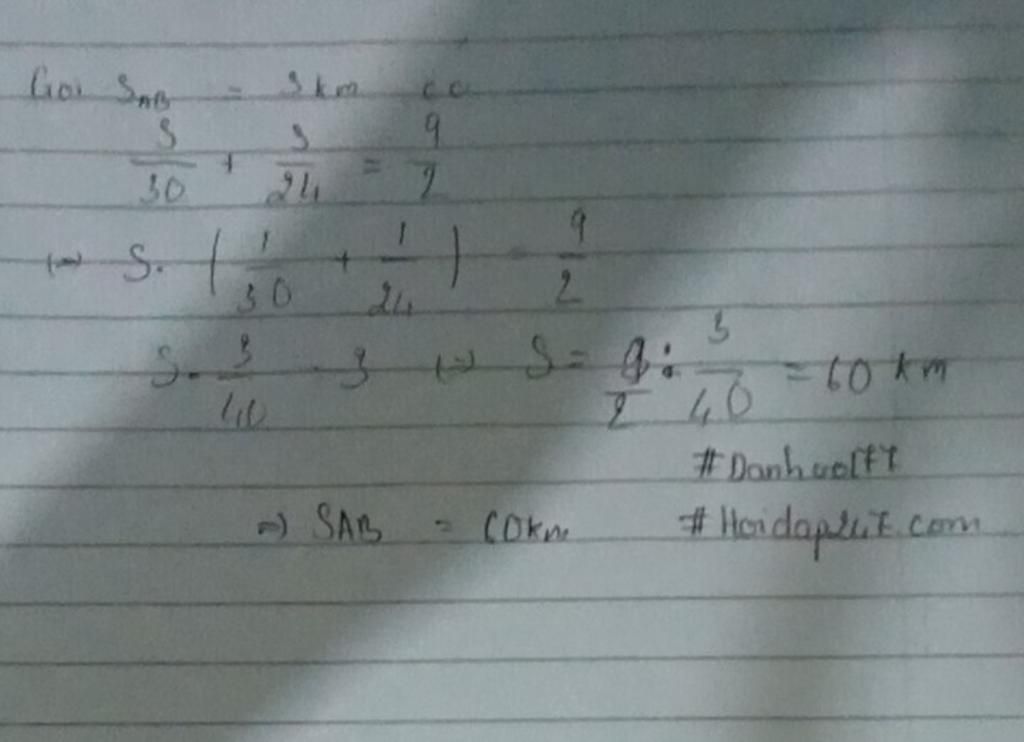 Gọi SAB = S km có
S/30 + S/24 = 9/2
<=> S. (1/30 + 1/24) = 9/2
S. 3/40 = 9 <=> S = 9/2 : 3/40 = 60 km
#Danhvolf7
=> SAB = 60km #Hoidap247.com